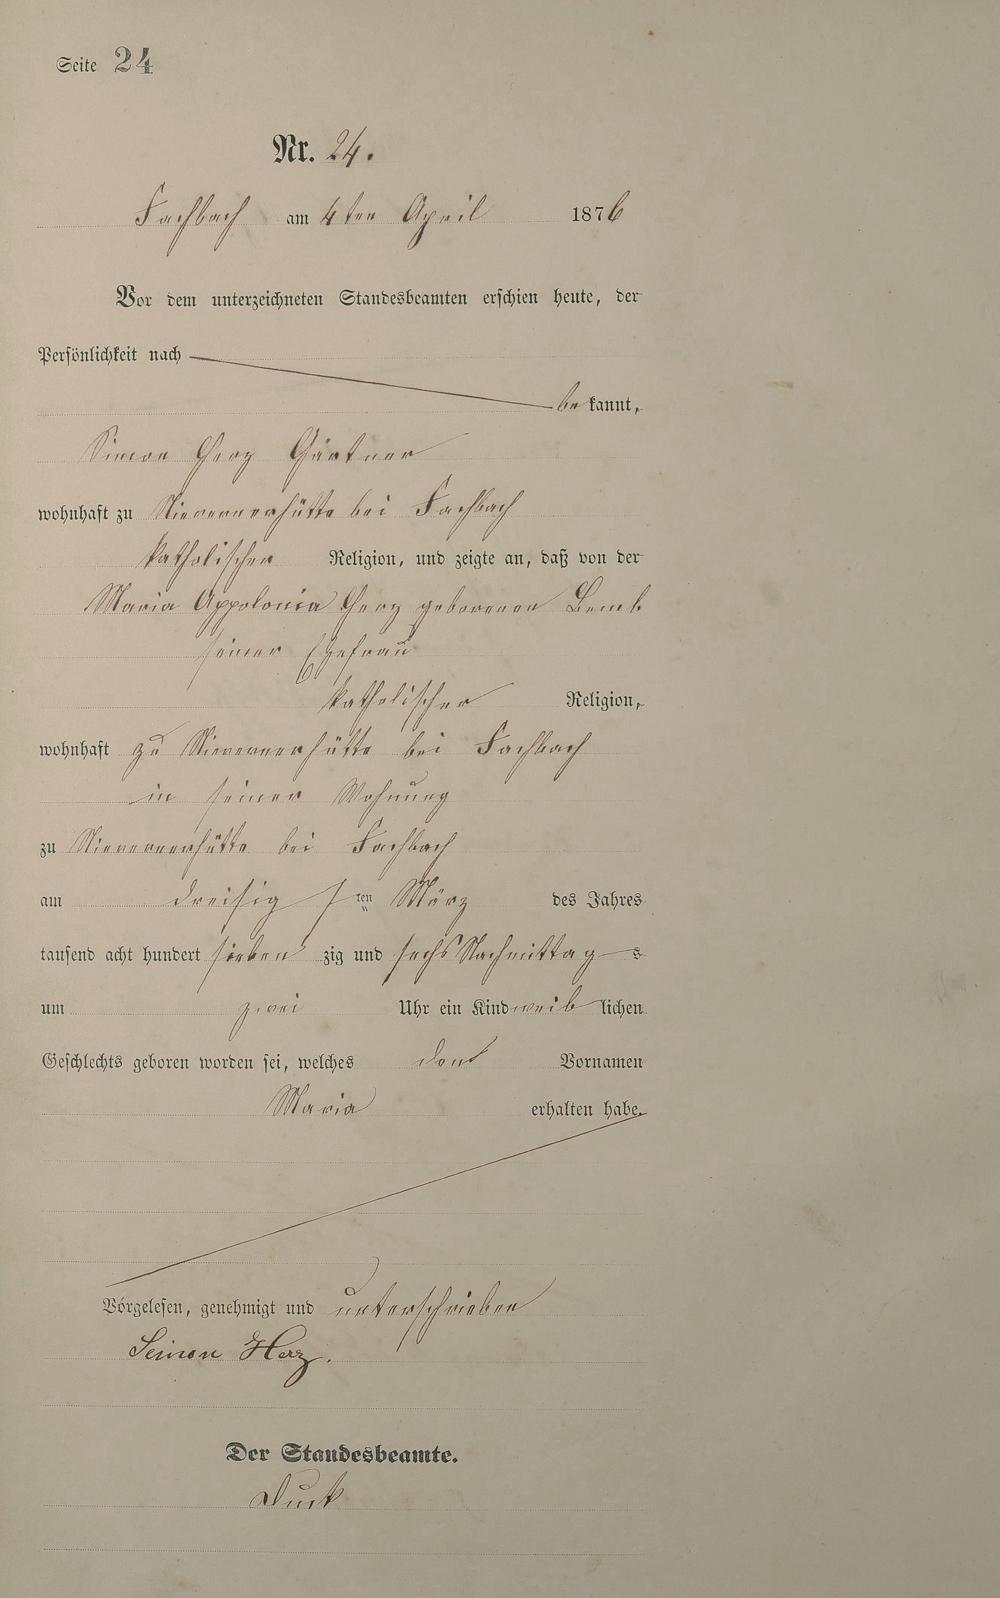 Seite 24
Nr. 24.
Fachbach am 4ten April 1876
Vor dem unterzeichneten Standesbeamten erschien heute, der
Persönlichkeit nach
bekannt,
Simon Herz Gärtner
wohnhaft zu Nievernerhütte bei Fachbach
katholischer Religion, und zeigte an, daß von der
Maria Appolonia Herz geborenen Lemb
seiner Ehefrau
katholischer Religion,
wohnhaft zu Nievernerhütte bei Fachbach
in seiner Wohnung
zu Nievernerhütte bei Fachbach
am dreisig sten März des Jahres
tausend acht hundert siebenzig und sechs Nachmittags
um zwei Uhr ein Kind weiblichen
Geschlechts geboren worden sei, welches den Vornamen
Maria erhalten habe.
Vorgelesen, genehmigt und unterschrieben
Simon Herz.
Der Standesbeamte.
Duck